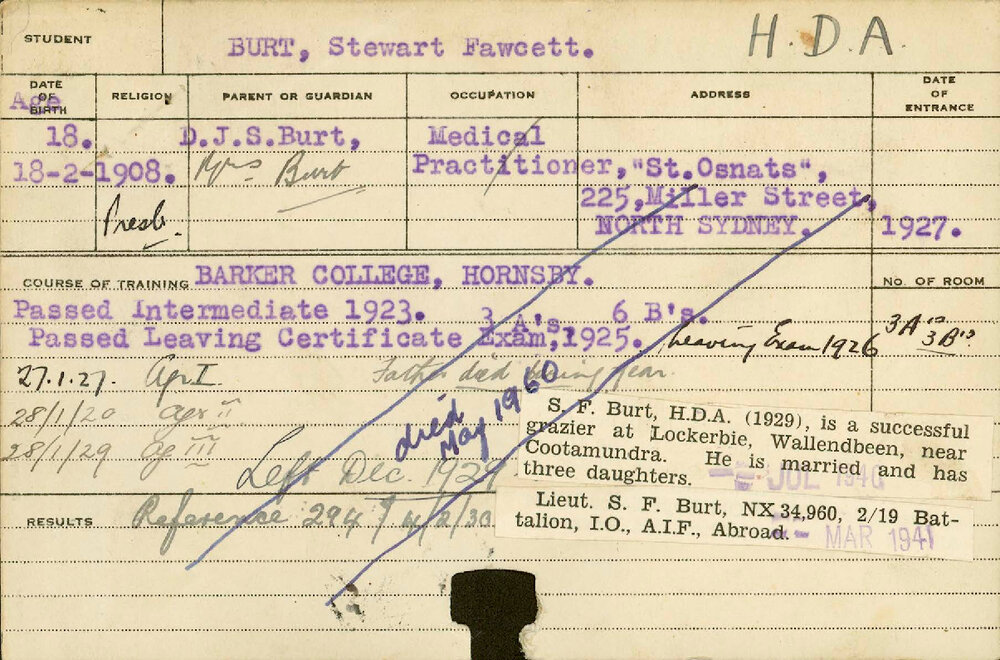 STUDENT BURT, Stewart Fawcett. H.D.A.
DATE OF BIRTH Age RELIGION PARENT OR GUARDIAN OCCUPATION ADDRESS DATE OF ENTRANCE
18. D.J.S.Burt, Medical
18-2-1908. Mrs Burt Practitioner, "St.Osnats",
225,Miller Street,
Presb. NORTH SYDNEY. 1927.
COURSE OF TRAINING BARKER COLLEGE, HORNSBY. NO. OF ROOM
Passed Intermediate 1923. 3 A's, 6 B's.
Passed Leaving Certificate Exam,1925. Leaving Exam 1926 3A's 3B's
27.1.27. Ag I Father died during year.
28/1/28 Ag II
28/1/29 Ag III
Left Dec. 1929
died May 1960
S. F. Burt, H.D.A. (1929), is a successful
grazier at Lockerbie, Wallendbeen, near
Cootamundra. He is married and has
three daughters. JUL 1940
RESULTS Reference 294 4/2/30
Lieut. S. F. Burt, NX 34,960, 2/19 Bat-
talion, I.O., A.I.F., Abroad. MAR 1941